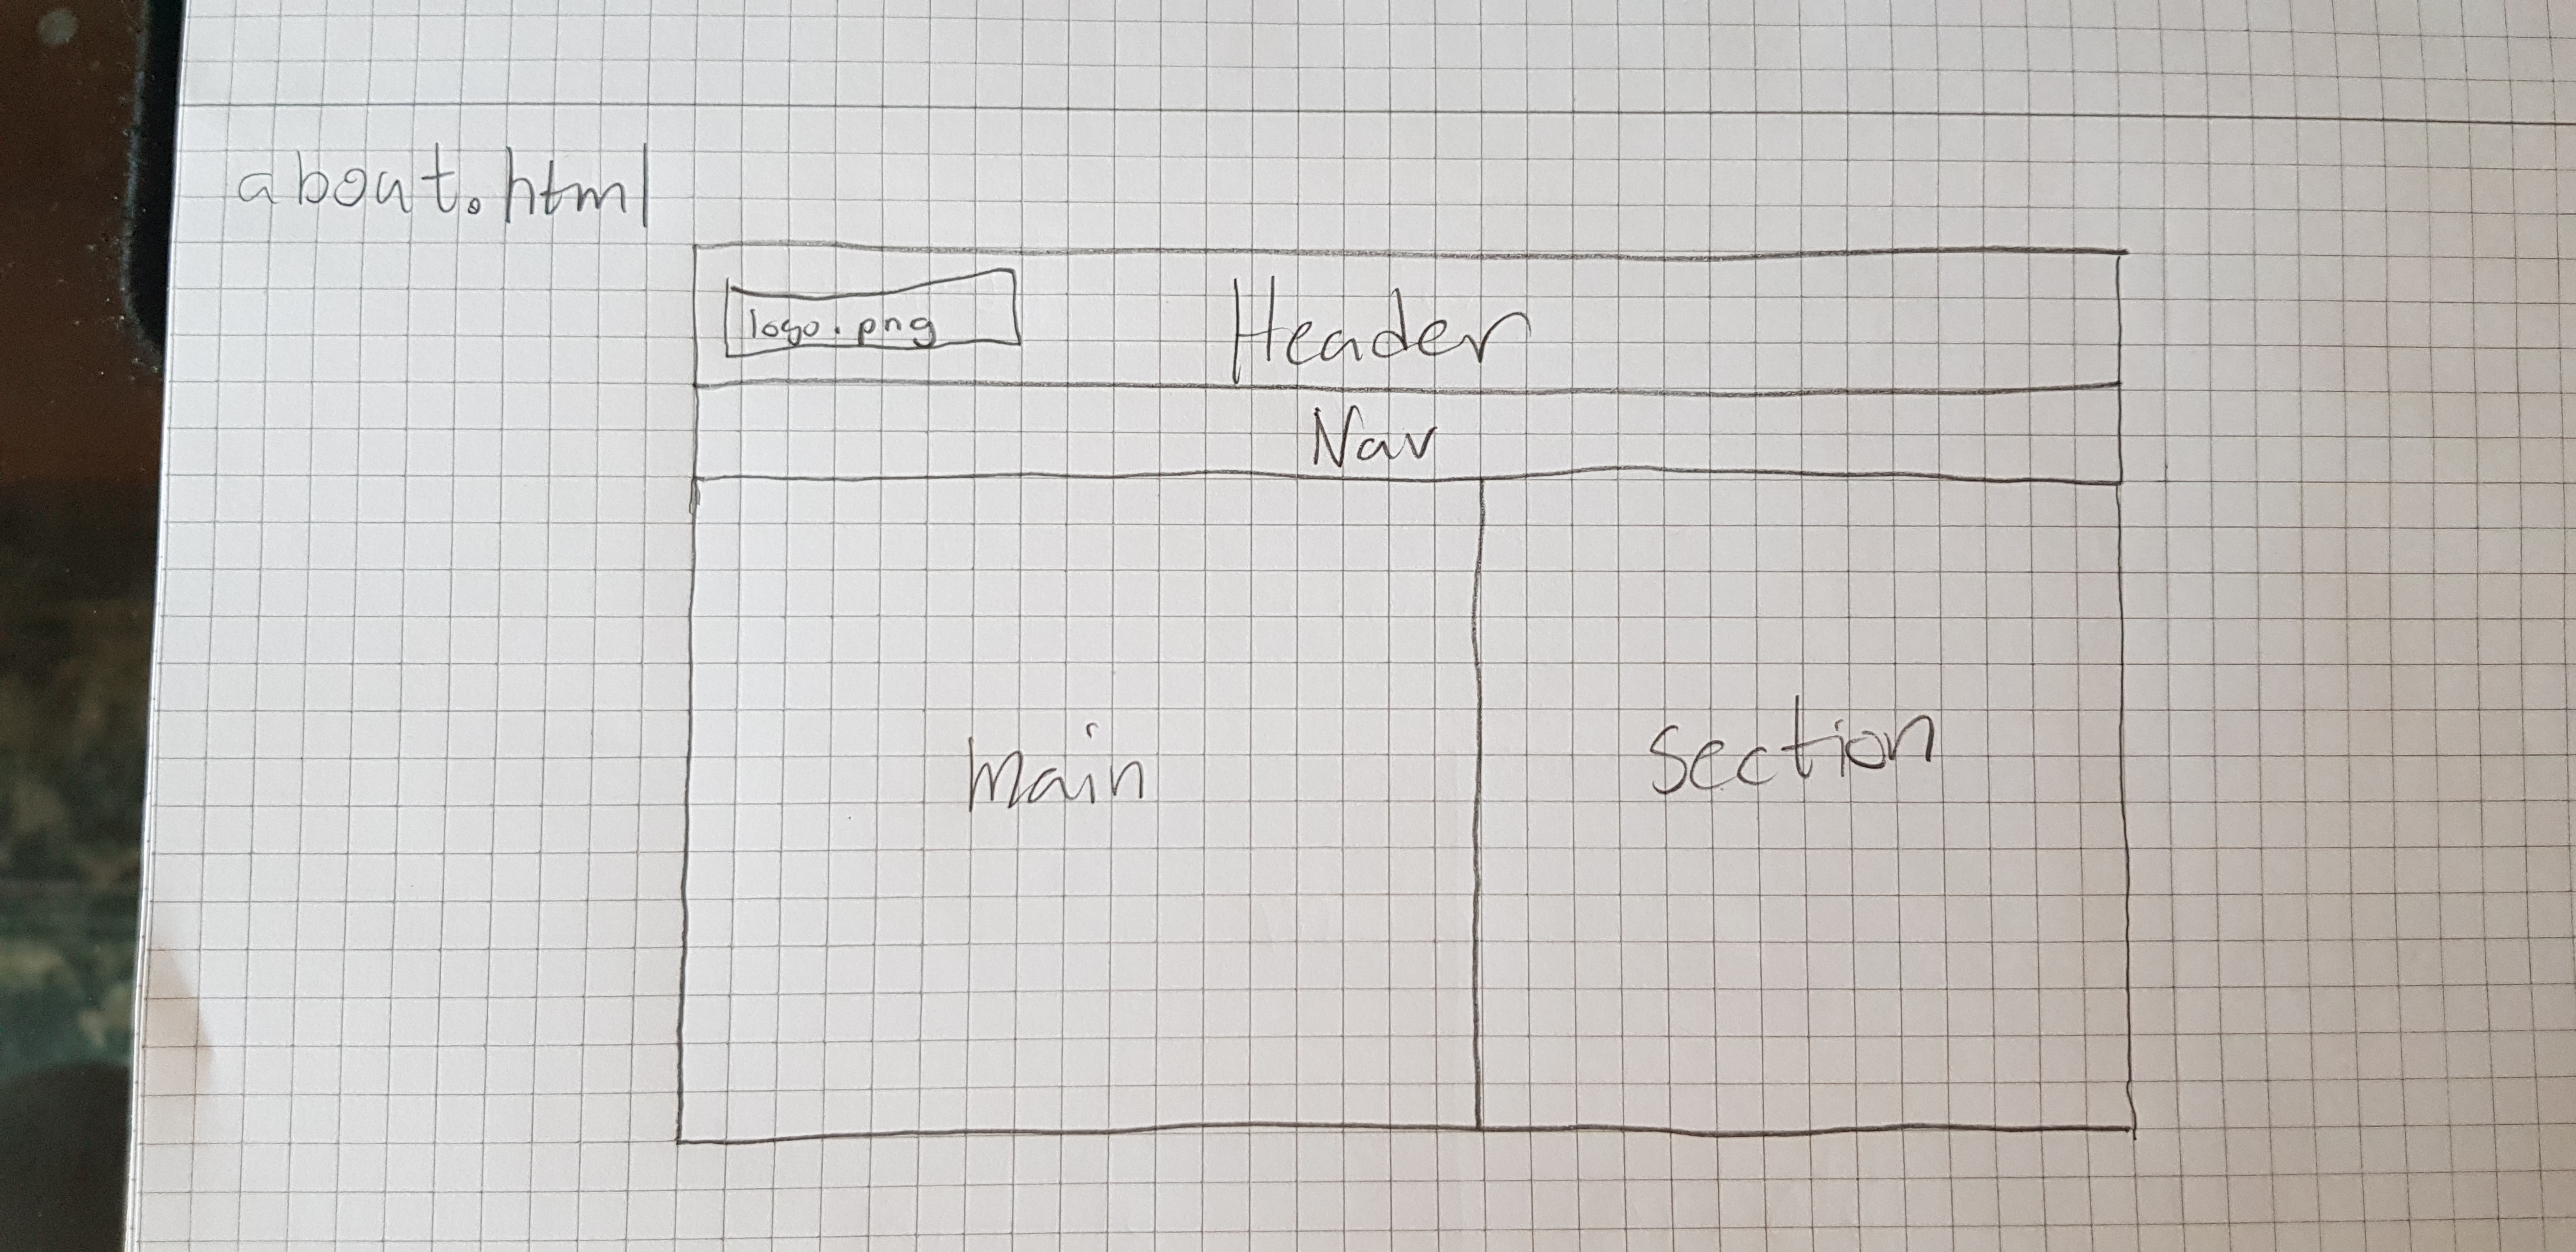 about.html
logo.png
Header
Nav
Main
Section